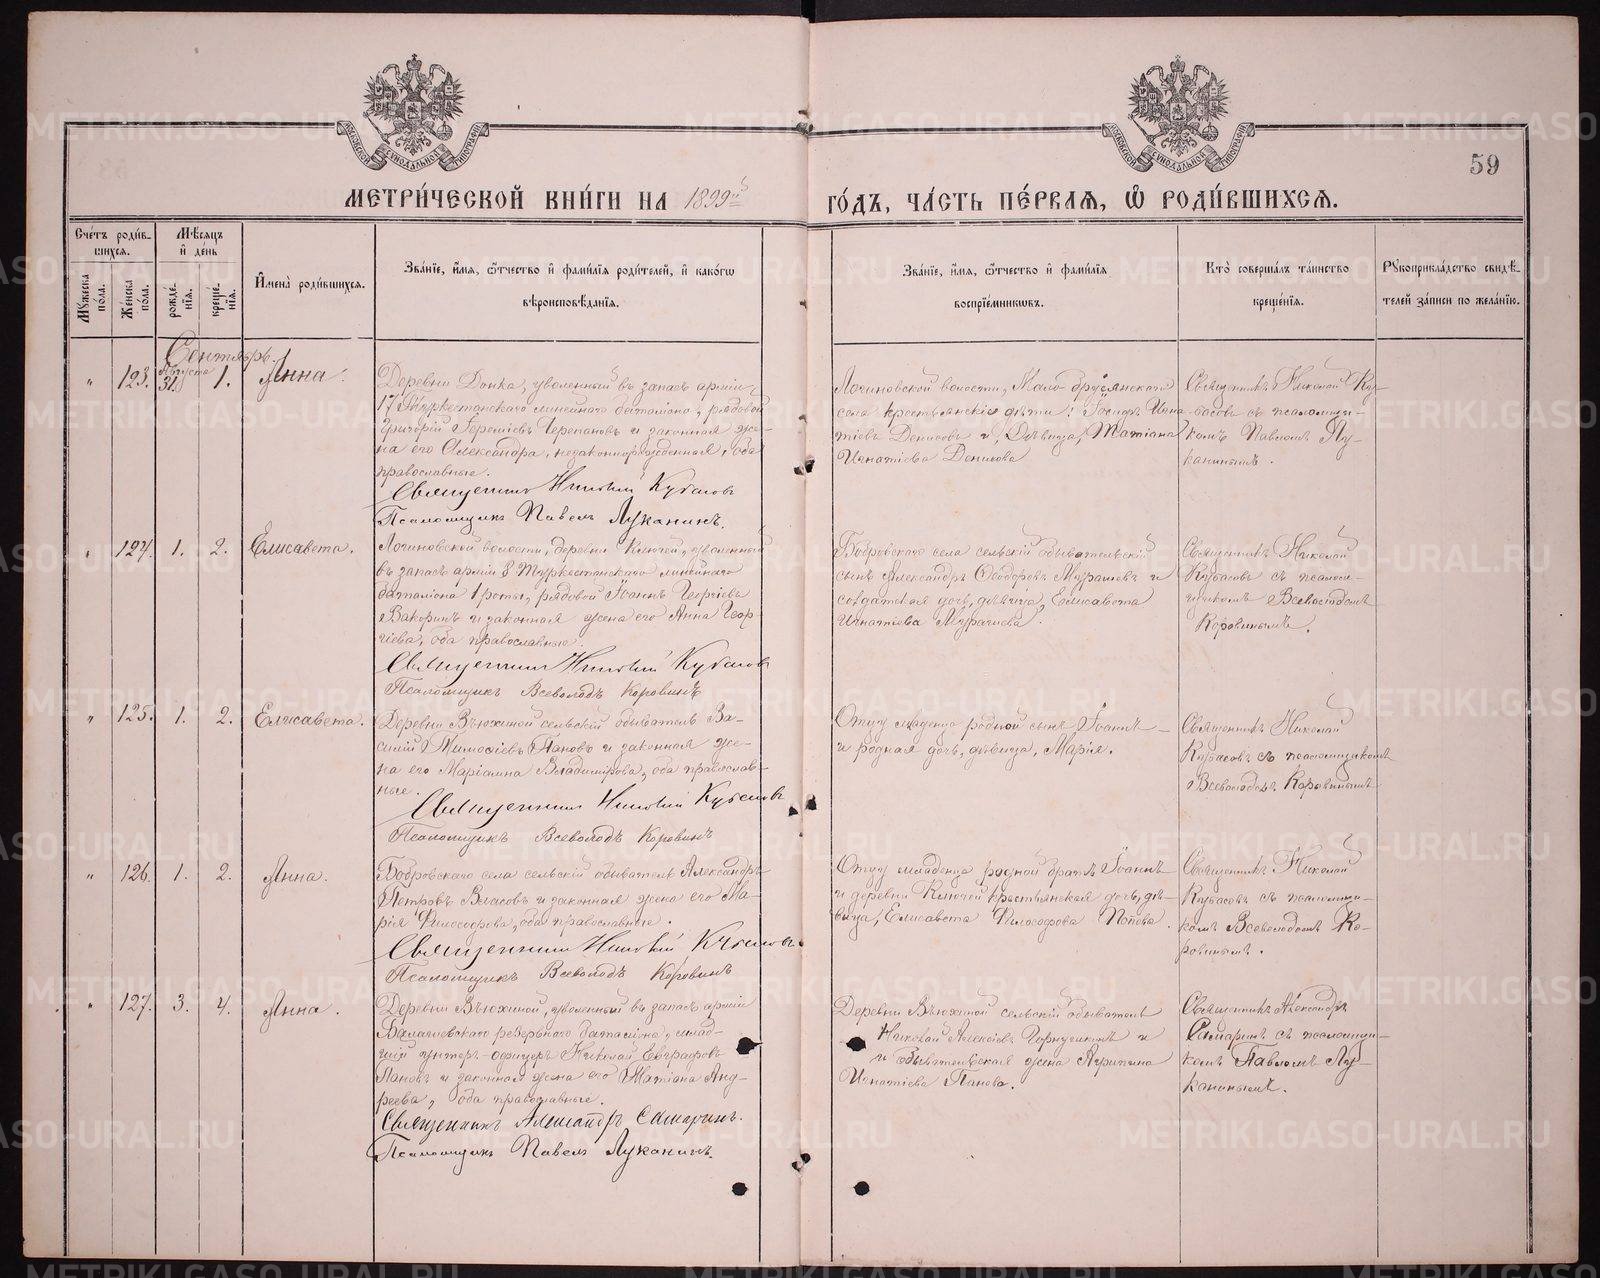 59
МЕТРИ́ЧЕСКОЙ КНИ́ГИ НА 1899й ГО́ДЪ, ЧА́СТЬ ПЕ́РВАЯ, Ѡ҆ РОДИ́ВШИХСЯ.
Сче́тъ роди́в-
шихся.
Мꙋ́жеска пола.
Же́нска пола.
Мѣ́сяцъ и҆ де́нь
рожде́-
нїя.
креще́-
нїя.
И҆мена̀ роди́вшихся.
Зва́нїе, и҆́мя, ѻ҆́тчество и҆ фами́лїя роди́телей, и҆ како́гѡ
вѣроисповѣ́данїя.
Зва́нїе, и҆́мя, ѻ҆́тчество и҆ фами́лїя
воспрїе́мникѡвъ.
Кто̀ соверша́лъ та́инство
креще́нїя.
Рꙋкоприкла́дство свидѣ́-
телей за́писи по жела́нїю.
Сентябрь.
" 123. Августа 31. 1. Анна.
Деревни Донка, уволенный въ запасъ арміи
17 Туркестанскаго линейнаго баталіона, рядовой
Григорій Іереміевъ Черепановъ и законная же-
на его Александра, незаконнорожденная, оба
православные.
Священникъ Николай Кубасовъ
Псаломщикъ Павелъ Луканинъ.
Логиновской волости, Мало-Брусянскаго
села крестьянскіе дѣти: Іосифъ Игна-
тіевъ Денисовъ и, дѣвица, Татіана
Игнатіева Денисова
Священникъ Николай Ку-
басовъ съ псаломщи-
комъ Павломъ Лу-
канинымъ.
" 124. 1. 2. Елисавета.
Логиновской волости, деревни Ключей, уволенный
въ запасъ арміи 8 Туркестанскаго линейнаго
баталіона 1 роты, рядовой Іоаннъ Георгіевъ
Вакоринъ и законная жена его Анна Геор-
гіева, оба православные.
Священникъ Николай Кубасовъ
Псаломщикъ Всеволодъ Коровинъ
Бобровскаго села сельскій обывательскій
сынъ Александръ Ѳеодоровъ Мурашевъ и
солдатская дочь, дѣвица, Елисавета
Игнатіева Мурашева.
Священникъ Николай
Кубасовъ съ псалом-
щикомъ Всеволодомъ
Коровинымъ.
" 125. 1. 2. Елисавета.
Деревни Вьюхиной сельскій обыватель Ва-
силій Тимоѳіевъ Пановъ и законная же-
на его Маріамна Владимірова, оба православ-
ные.
Священникъ Николай Кубасовъ
Псаломщикъ Всеволодъ Коровинъ
Отцу младенца родной сынъ Іоаннъ
и родная дочь, дѣвица, Марія.
Священникъ Николай
Кубасовъ съ псаломщикомъ
Всеволодомъ Коровинымъ
" 126. 1. 2. Анна.
Бобровскаго села сельскій обыватель Александръ
Петровъ Власовъ и законная жена его Ма-
рія Философова, оба православные.
Священникъ Николай Кубасовъ
Псаломщикъ Всеволодъ Коровинъ
Отцу младенца родной братъ Іоаннъ
и деревни Ключей крестьянская дочь, дѣ-
вица, Елисавета Философова Попова.
Священникъ Николай
Кубасовъ съ псаломщи-
комъ Всеволодомъ Ко-
ровинымъ.
" 127. 3. 4. Анна.
Деревни Вьюхиной, уволенный въ запасъ арміи
резервнаго баталіона, млад-
шій унтеръ-офицеръ Николай Евграфовъ
Пановъ и законная жена его Татіана Анд-
реева, оба православные.
Священникъ Александръ Самаринъ.
Псаломщикъ Павелъ Луканинъ.
Деревни Вьюхиной сельскій обыватель
Николай Алексіевъ и
и обывательская жена Агрипина
Игнатіева Панова.
Священникъ Александръ
Самаринъ съ псаломщи-
комъ Павломъ Лу-
канинымъ.
METRIKI.GASO-URAL.RU